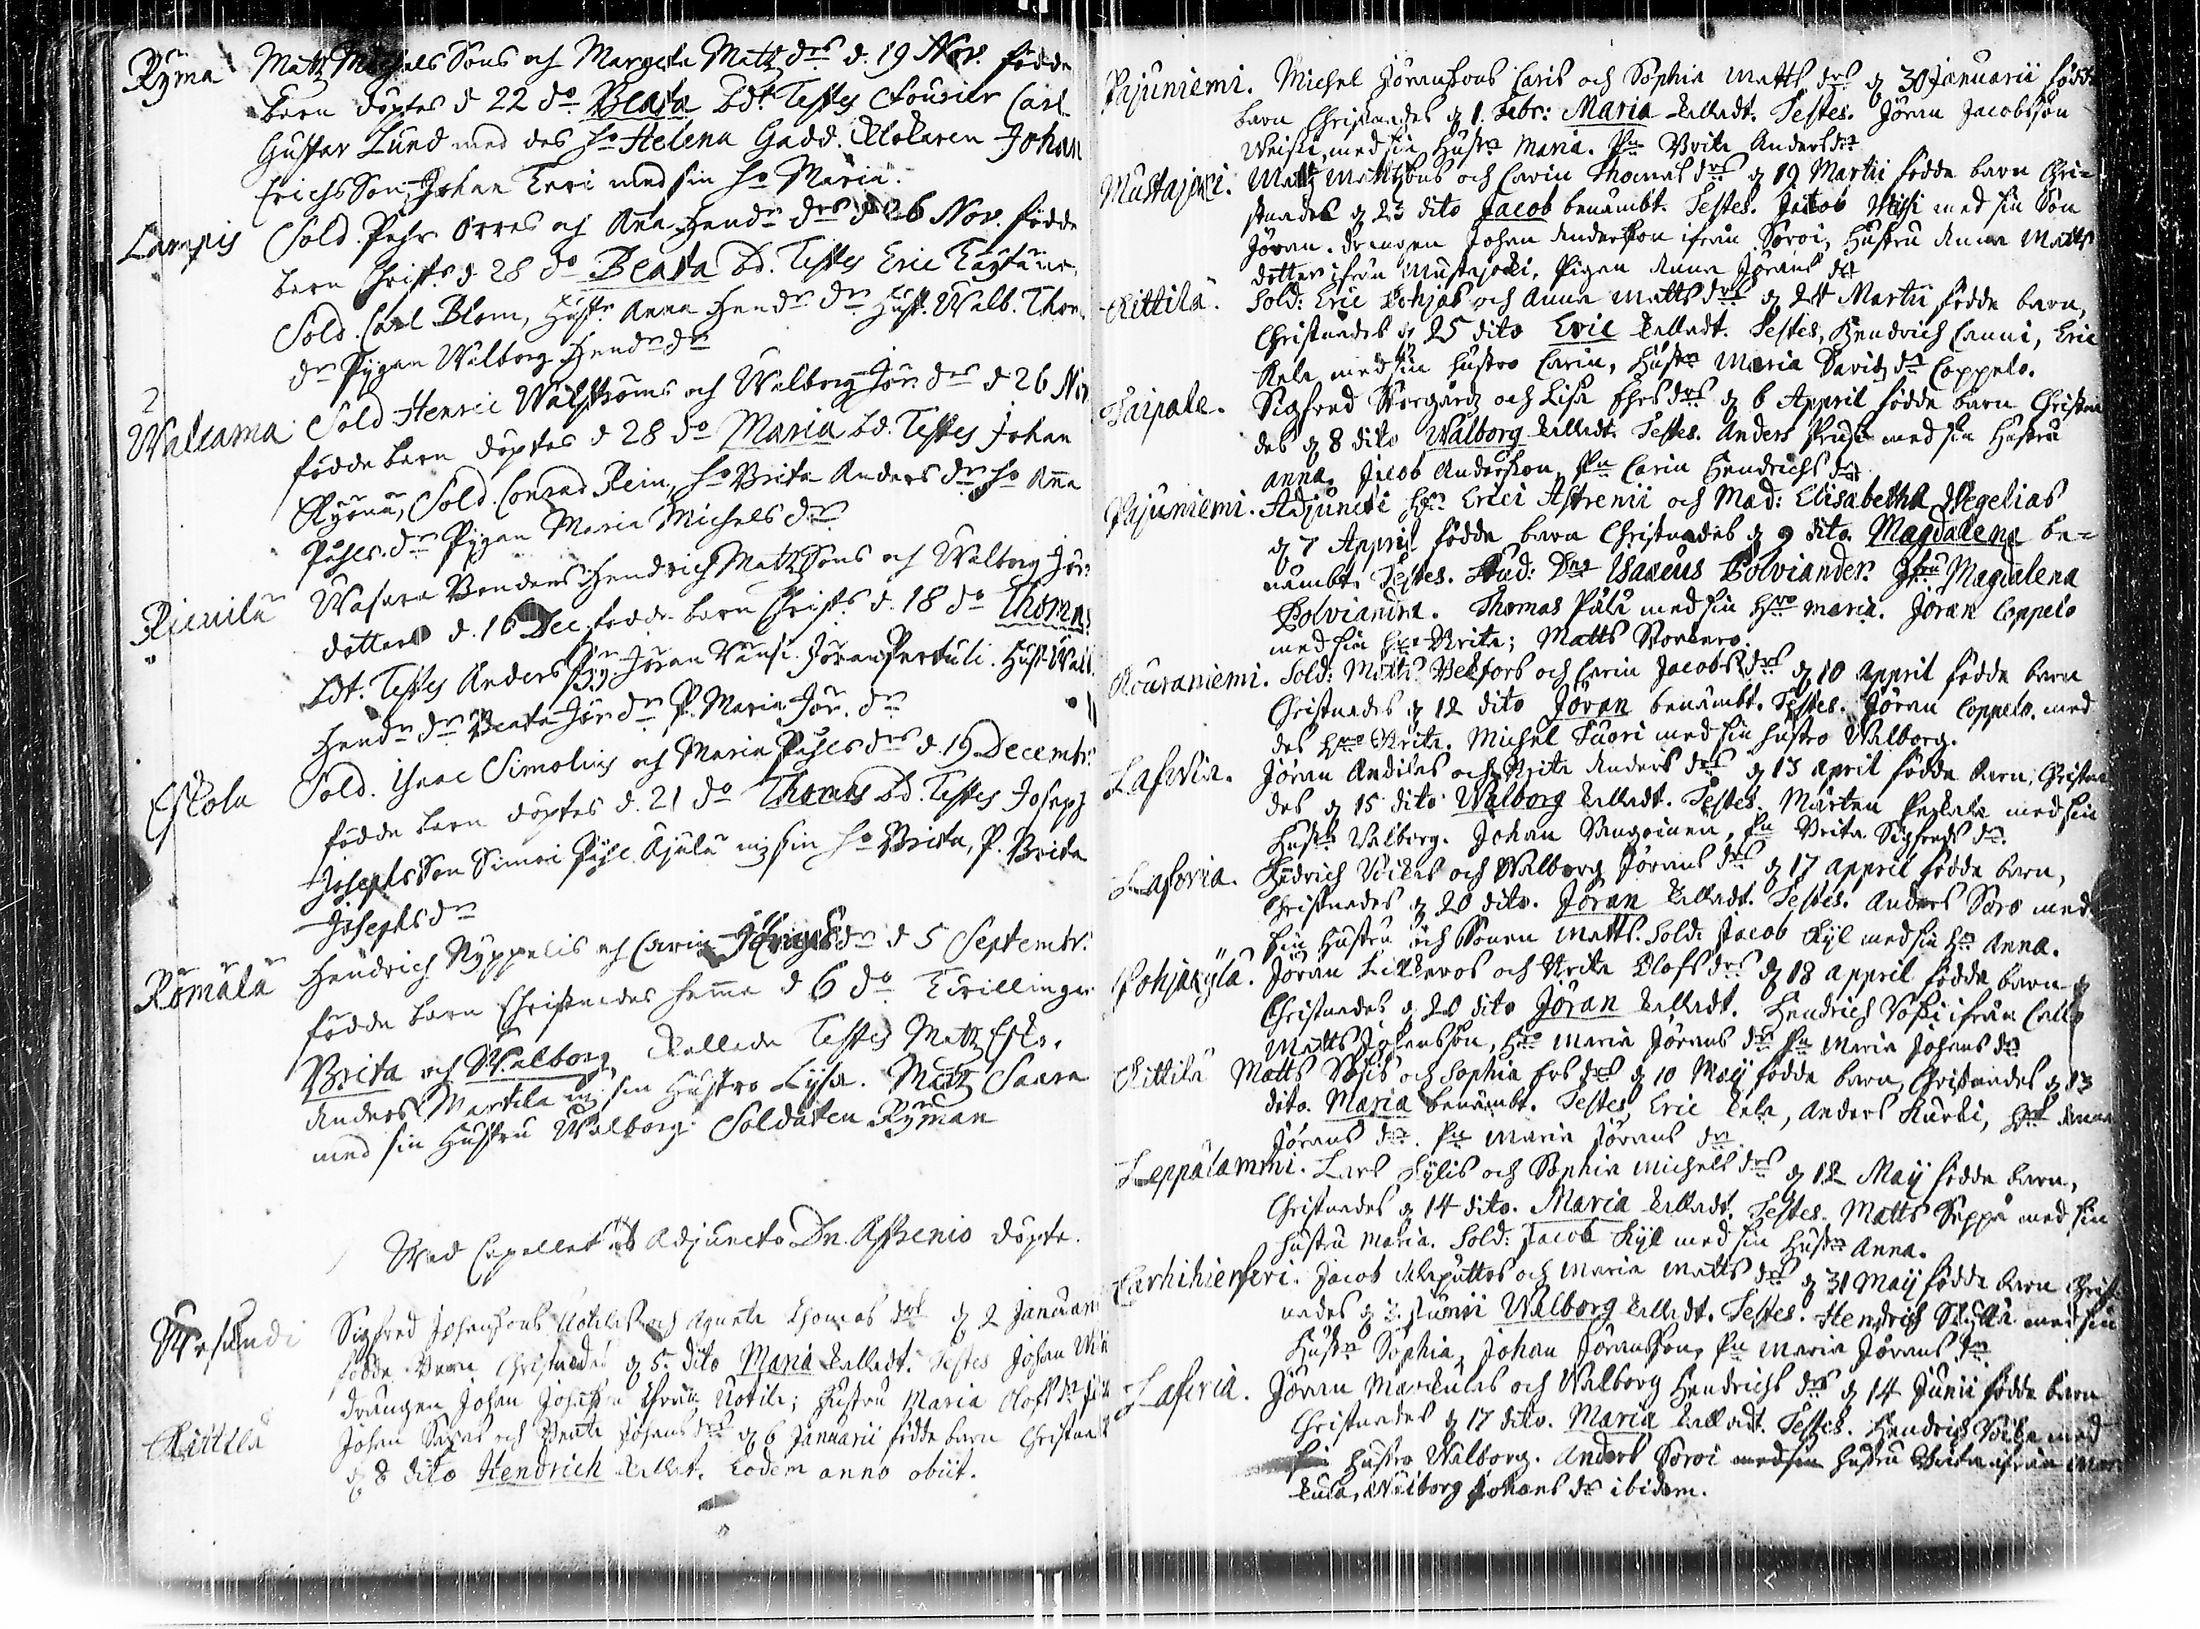 Ryma Matz Michels Sons och Margeta Matz drs d. 19 Nov. födde
barn döptes d 22 do Beata bdt Testes Fourier Carl
Gustav Lund med des ho Helena Gadd. Klokaren Johan
Erichs Son, Johan Keri med sin ho Maria.
Lampis Sold. Pehr Orres och Ana Hendr drs d 26 Nov. födde
barn Christs d 28 do Beata bd. Testes Eric
Sold. Carl Blom, Hust. Anna Hendr dr Hust. Walb. Thom
dr Pygan Walborg Hendr dr
2
Walcama Sold Henric Walstroms och Walborg Jör. drs d. 26 Nov
födde barn döptes d 28 do Maria bd. Testes Johan
Sold. Conrad Rein, ho Brita Anders dr ho Ana
Påhls dr Pygan Maria Michels dr
Rienilä Wasara Bondens Hendrich Matz Sons och Walborg Jör
dotters d. 16 Dec födde barn Christs d. 18 do Thomas
bdt. Testes Anders Jöran Jöran Pertuli. Hust. Walb.
Hendr dr Beata Jör. dr P. Maria Jör. dr
Eskola Sold. Isaac Simolins och Maria Påhls drs d. 19 Decembr.
födde barn döptes d. 21 do Thomas bd. Testes Joseph
Josephs Son Simoi Påhl Ajälä m sin ho Brita, P. Brita
Josephs dr
Römälä Hendrich Nyppelis och Carin dr d 5 Septembr.
födde barn Christnades hema d 6 do Tvillingar
Brita och Walborg, kallade Testes Matz Esko.
Anders Martila m sin Hustro Lysa. Matz Saara
med sin Hustru Walborg. Soldaten Ryman
Wed Capellet af Adjuncto Dn. Astrenio döpte.
Sigfred Johansons Uotilas och Agneta Thomas drs d 2 Januarii
födde barn Christnades d 5. dito Maria kalladt. Testes Johan
drängen Johan Uotila; Hustru Maria Olofs dr
Kittilä Johan och Beata Johans drs d 6 Januarii födde barn Christnades
d 8 dito Hendrich kallat. Eodem anno obiit.
Pajuniemi. Michel Jöransons Caris och Sophia Matts drs d 30 Januarii födde
barn Christnades d 1. Febr: Maria kalladt. Testes. Jöran Jacobsson
med sin Hustro Maria. Pn Brita Anders dr
Mustajoki. Matz Mattssons och Carin Thomas drs d 19 Martii födde barn Chri=
stnades d 23 dito Jacob benämbt. Testes. Jacob med sin Son
Jöran. drengen Johan Andersson ifrån Soroi, Hustru Anna Matts
dotter ifrån Mustajoki, Pigan Anna Jörans dr
Kittilä. Sold: Eric Pohjas och Anna Matts drs d 24 Martii födde barn,
Christnades d 25 dito Eric kalladt. Testes, Hendrich Canni, Eric
Kela med sin hustro Carin, Hustro Maria Davidz dr Coppelo.
Taipale. Sigfred Norgårds och Lisa Ehrs drs d 6 Appril födde barn Christna
des d 8 dito Walborg kalladt. Testes. Anders med sin Hustru
Anna, Jacob Andersson, Pn Carin Hendrichs dr
Pajuniemi. Adjuncti Hr Erici Astrenii och Mad: Elisabetha Wegelias
d 7 Appril födde barn Christnades d 9 dito. Magdalena be=
nämbt. Testes. Stud: Dns Isaacus Polviander. Jfru Magdalena
Polviandra. Thomas Pälä med sin hro Maria. Jöran Coppelo
med sin hro Brita; Matts
Kouraniemi. Sold: Matts Bekfors och Carin Jacobs drs d 10 Appril födde barn
Christnades d 12 dito Jöran benämbt. Testes. Jöran Coppelo. med
des hro Brita. Michel Tuori med sin hustro Walborg.
Laforia. Jöran Andilas och Brita Anders drs d 13 april födde barn, Christna
des d 15 dito Walborg kalladt. Testes. Mårten med sin
Hustro Walborg. Johan Pn Brita Sigfreds dr
Laforia. Hendrich Ucikas och Walborg Jörans drs d 17 Appril födde barn,
Christnades d 20 dito. Jöran kalladt. Testes. Anders Soro med
sin Hustru och Sonen Matts. Sold: Jacob Kyl med sin hro Anna.
Pohjakylä. Jöran och Brita Olofs drs d 18 april födde barn
Christnades d 20 dito Jöran kalladt. Hendrich ifrån
Matts Johansson, Hro Maria Jörans dr Pn Maria Johans dr
Kittilä Matts och Sophia Ers drs d 10 Maij födde barn, Christnades d 13
dito. Maria benämbt. Testes, Eric Kela, Anders Kurki, Hro Anna
Jörans dr. Pn Maria Jörans dr
Leppälammi. Lars Kylis och Sophia Michels drs d 12 Maij födde barn,
Christnades d 14 dito. Maria kalladt. Testes. Matts Seppä med sin
hustru Maria. Sold: Jacob Kyl med sin Hustro Anna.
Jacob och Maria Matts drs d 31 Maij födde barn Christ
nades d 2. Junii Walborg kalladt. Testes. Hendrich med sin
Hustro Sophia, Johan Jöransson, Pn Maria Jörans dr
Laforia. Jöran Markulas och Walborg Hendrichs drs d 14 Junii födde barn
Christnades d 17 dito. Maria kalladt. Testes. Hendrich med
sin hustro Walborg. Anders Soroi med sin hustru Brita ifrån
Walborg Johans dr ibidem.